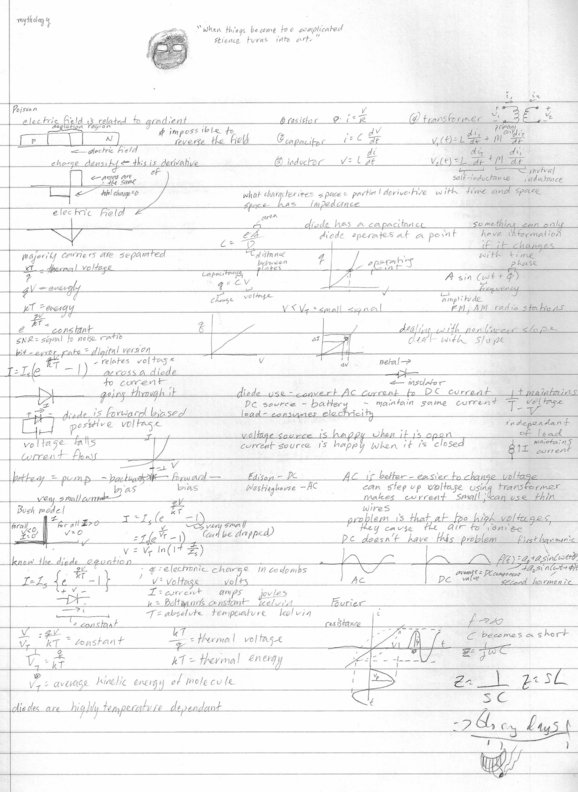 mythology
"When things become too complicated
science turns into art."
Poisson
electric field is related to gradient
depletion region
P N
electric field
* impossible to
reverse the field
charge density ← this is derivative
of
areas are
the same
total charge = 0
electric field
① resistor i = V/R
② capacitor i = C dV/dt
③ inductor V = L di/dt
④ transformer
primary
coil
V₁(t) = L di₁/dt + M di₂/dt
V₂(t) = L di₂/dt + M di₁/dt
self-inductance
mutual
inductance
what characterizes space = partial derivative with time and space
space has impedance
area
C = εA/D
distance
between
plates
capacitance
q = CV
charge voltage
diode has a capacitance
diode operates at a point
q
operating
point
V
something can only
have information
if it changes
with time
phase
A sin (ωt + φ)
frequency
amplitude
FM, AM radio stations
majority carriers are separated
kT/q = thermal voltage
qV = energy
kT = energy
e^(qV/kT) = constant
SNR = signal to noise ratio
bit error rate = digital version
V < V_T = small signal
q
V
ΔI
ΔV
dealing with nonlinear slope
deal with slope
I = I_s(e^(qV/kT) - 1) - relates voltage
across a diode
to current
going through it
metal →
← insulator
diode is forward biased
positive voltage
voltage falls
current flows
I
V
diode use - convert AC current to DC current
DC source - battery - maintain same current
load - consumes electricity
maintains
voltage
independent
of load
maintains
current
voltage source is happy when it is open
current source is happy when it is closed
battery = pump
backward bias
forward bias
very small current
Edison - DC
Westinghouse - AC
AC is better - easier to change voltage
can step up voltage using transformer
makes current small, can use thin
wires
problem is that at too high voltages,
they cause the air to ionize
DC doesn't have this problem
Bush model
for all
V<0,
I=0
for all I>0
V=0
I = I_s(e^(qV/kT) - 1)
= I_s(e^(V/V_T) - 1)
is very small
(can be dropped)
V = V_T ln(1 + I/I_s)
first harmonic
AC
DC
average = DC component
value
second harmonic
know the diode equation
I = I_s {e^(qV/kT) - 1}
+ V -
= constant
q = electronic charge in coulombs
V = voltage volts
I = current amps joules
k = Boltzmann's constant kelvin
T = absolute temperature kelvin
Fourier
resistance
i
t
f → ∞
C becomes a short
Z = 1/jωC
Z = 1/SC Z = SL
V/V_T = qV/kT = constant
kT/q = thermal voltage
kT = thermal energy
V_T = average kinetic energy of molecule
diodes are highly temperature dependant